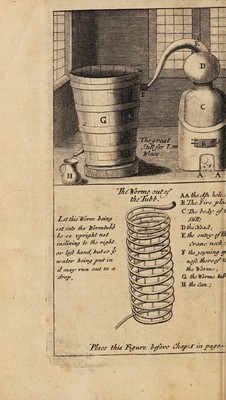 E
D
F
G
C
B
The great
Still for Low
Wines
H
A A
The Worme out of
the Tubb.
Let this Worm being
set into the Wormtubb
be so upright not
inclining to the right
or left hand, but so yt
water being put in
it may run out to a
drop,
AA the Ash hole
B The Fire pla
C The body of t
Still;
D the Head;
E the entry of th
Crane neck;
F the joyning of
neck there of to
the Worme;
G the Worme tub
H the Can;
Place this Figure before Chap: 1 in page